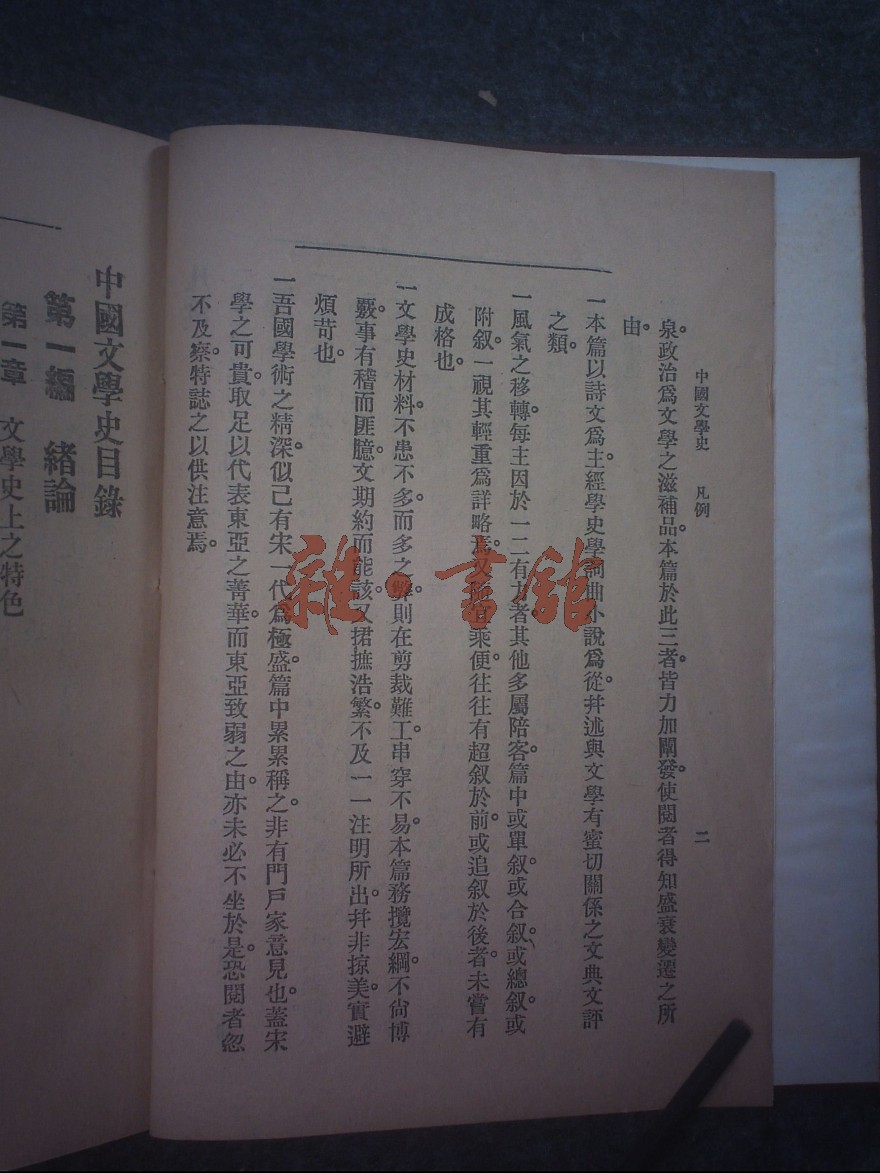 中國文學史 凡例 二
泉。政治爲文學之滋補品。本篇於此三者。皆力加闡發。使閱者得知盛衰變遷之所
由。
一本篇以詩文爲主。經學史學詞曲小說爲從。幷述與文學有蜜切關係之文典文評
之類。
一風氣之移轉。每主因於一二有力者。其他多屬陪客。篇中或單叙。或合叙。或總叙。或
附叙。一視其輕重爲詳略焉。又隨宜乘便。往往有超叙於前。或追叙於後者。未嘗有
成格也。
一文學史材料。不患不多。而多之弊。則在剪裁難工。串穿不易。本篇務攬宏綱。不尙博
覈。事有稽而匪臆。文期約而能該。又捃摭浩繁。不及一一注明所出。幷非掠美。實避
煩苛也。
一吾國學術之精深。似已有宋一代爲極盛。篇中累累稱之。非有門戶家意見也。蓋宋
學之可貴。取足以代表東亞之菁華。而東亞致弱之由。亦未必不坐於是。恐閱者忽
不及察。特誌之以供注意焉。
中國文學史目錄
第一編 緒論
第一章 文學史上之特色
雜·書館